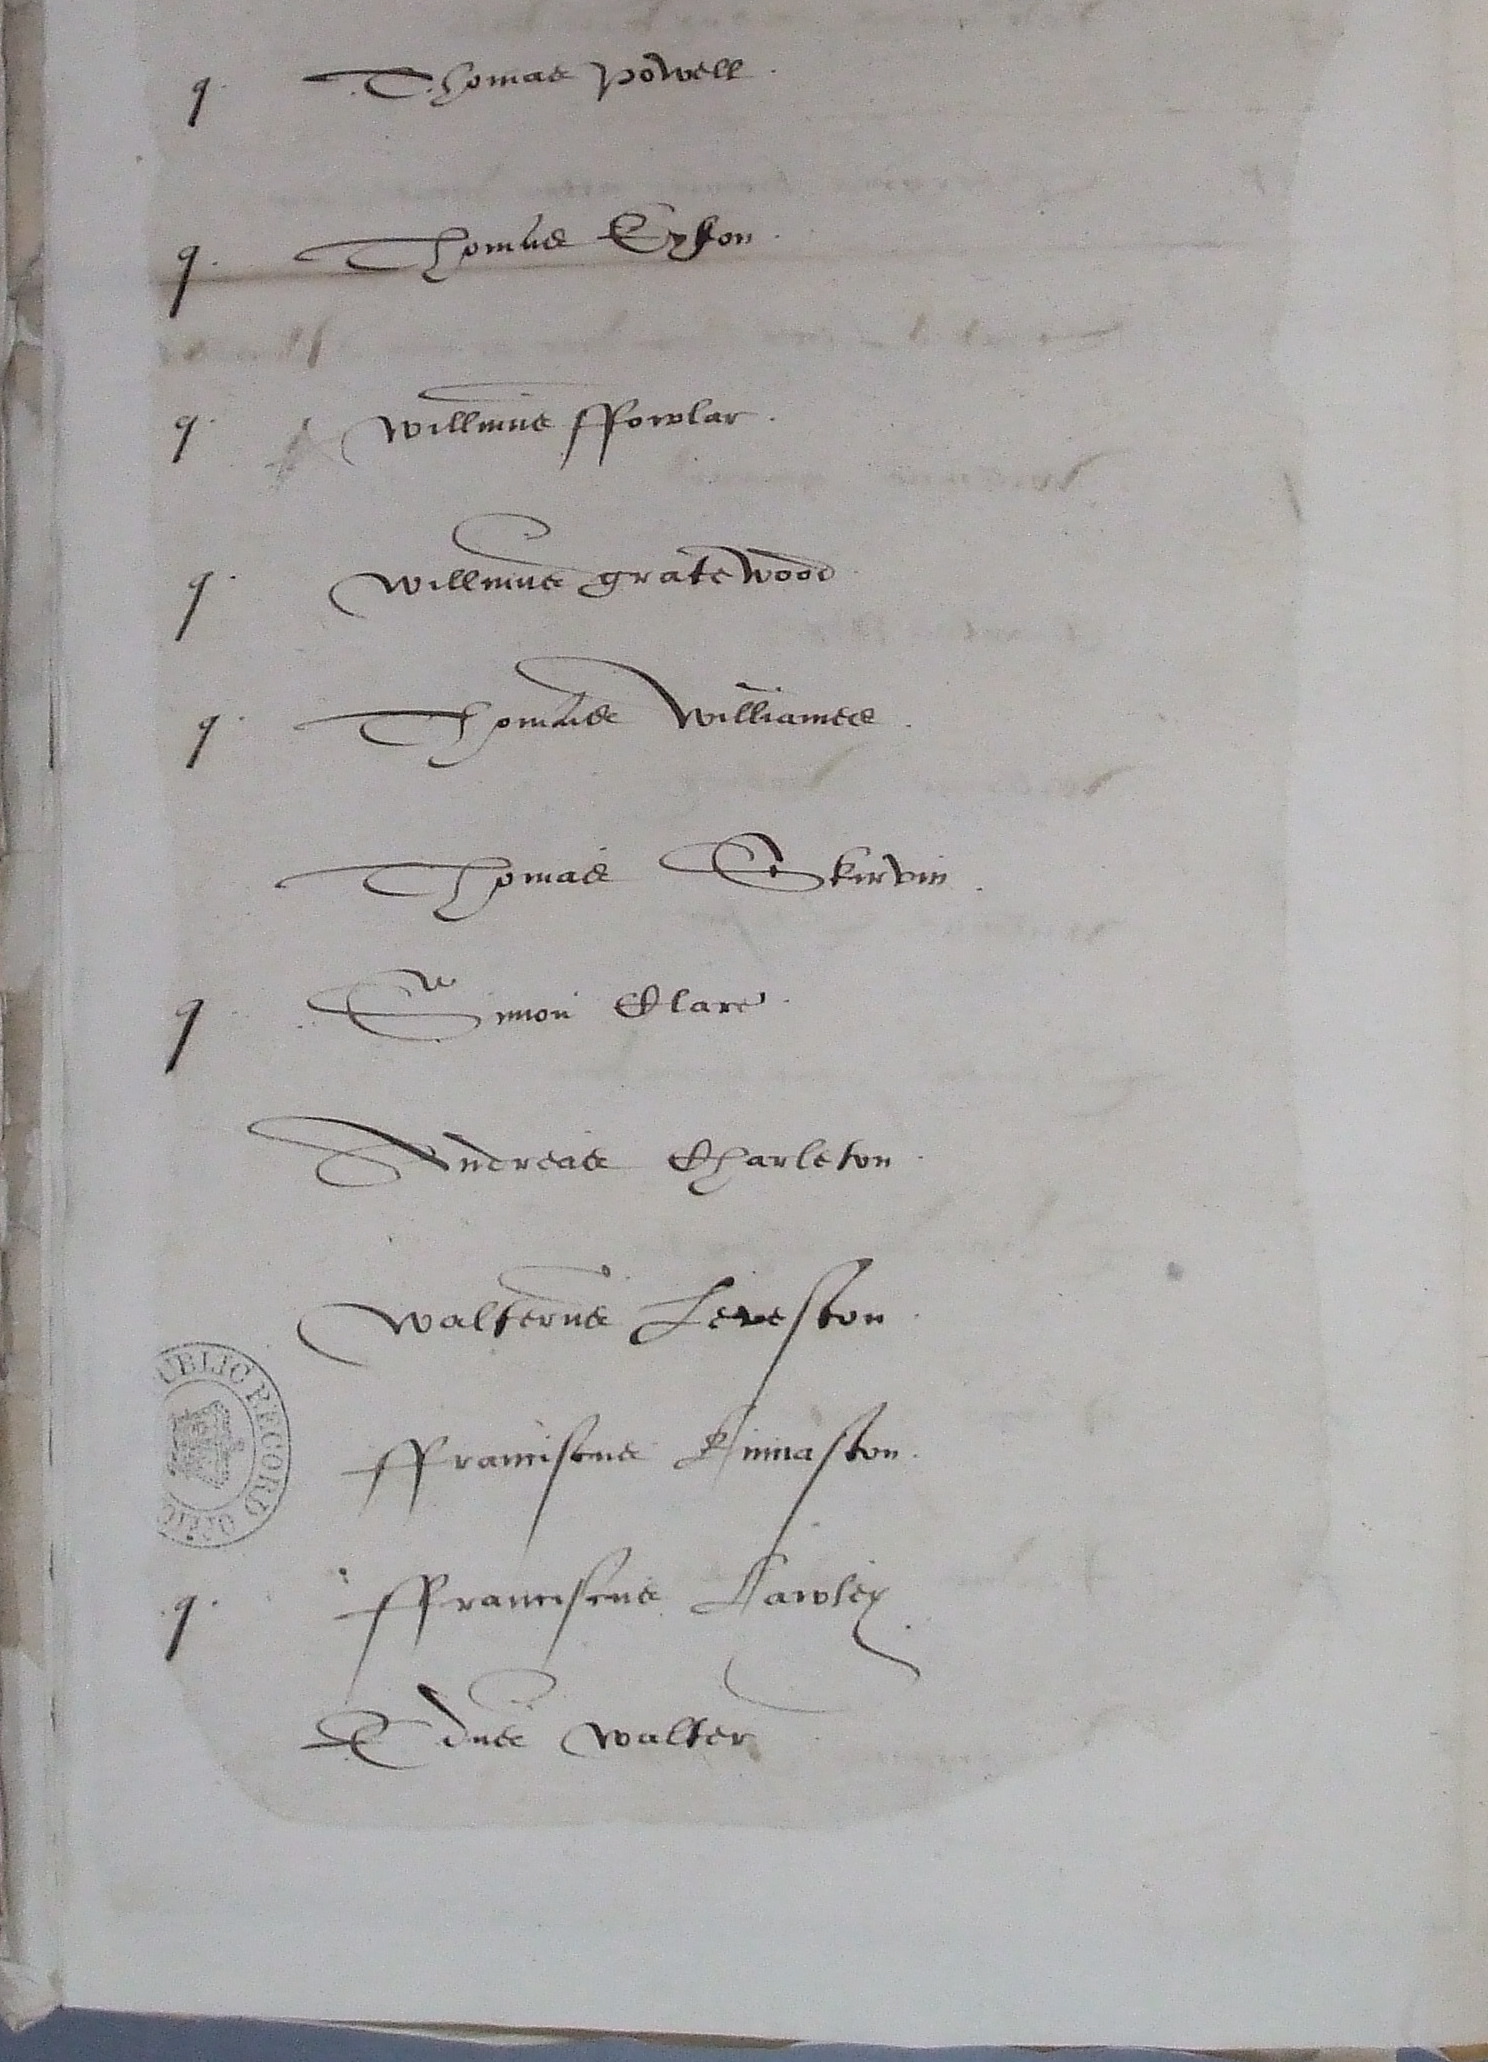 q. Thomas Powell.
q. Thomas Eyton.
q. Willmus ffowlar.
q. Willmus gratewood
q. Thomas Williames.
Thomas Skirvin.
q. Simon Clare.
Andreas Charleton.
Walterus Leveston.
ffranciscus Kinnaston.
q. ffranciscus Lawley.
Edus Walter
PUBLIC RECORD OFFICE